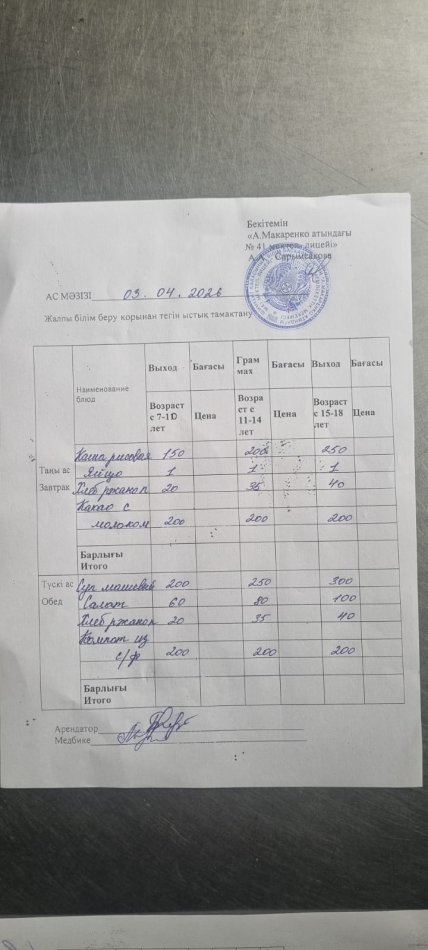 Бекітемін
«А.Макаренко атындағы
№ 41 мектеп-лицейі»
А.А. Сарымсакова
АС МӘЗІЗІ 03.04.2026
Жалпы білім беру қорынан тегін ыстық тамақтану
Наименование блюд Выход Бағасы Грам мах Бағасы Выход Бағасы
Возраст с 7-11 лет Цена Возра ст с 11-14 лет Цена Возраст с 15-18 лет Цена
Каша рисовая 150 200 250
Таңғы ас Яйцо 1 1 1
Завтрак Хлеб ржаной 20 35 40
Какао с
молоком 200 200 200
Барлығы
Итого
Түскі ас Суп машевый 200 250 300
Обед Салат 60 80 100
Хлеб ржаной 20 35 40
Компот из
с/ф 200 200 200
Барлығы
Итого
Арендатор
Медбике